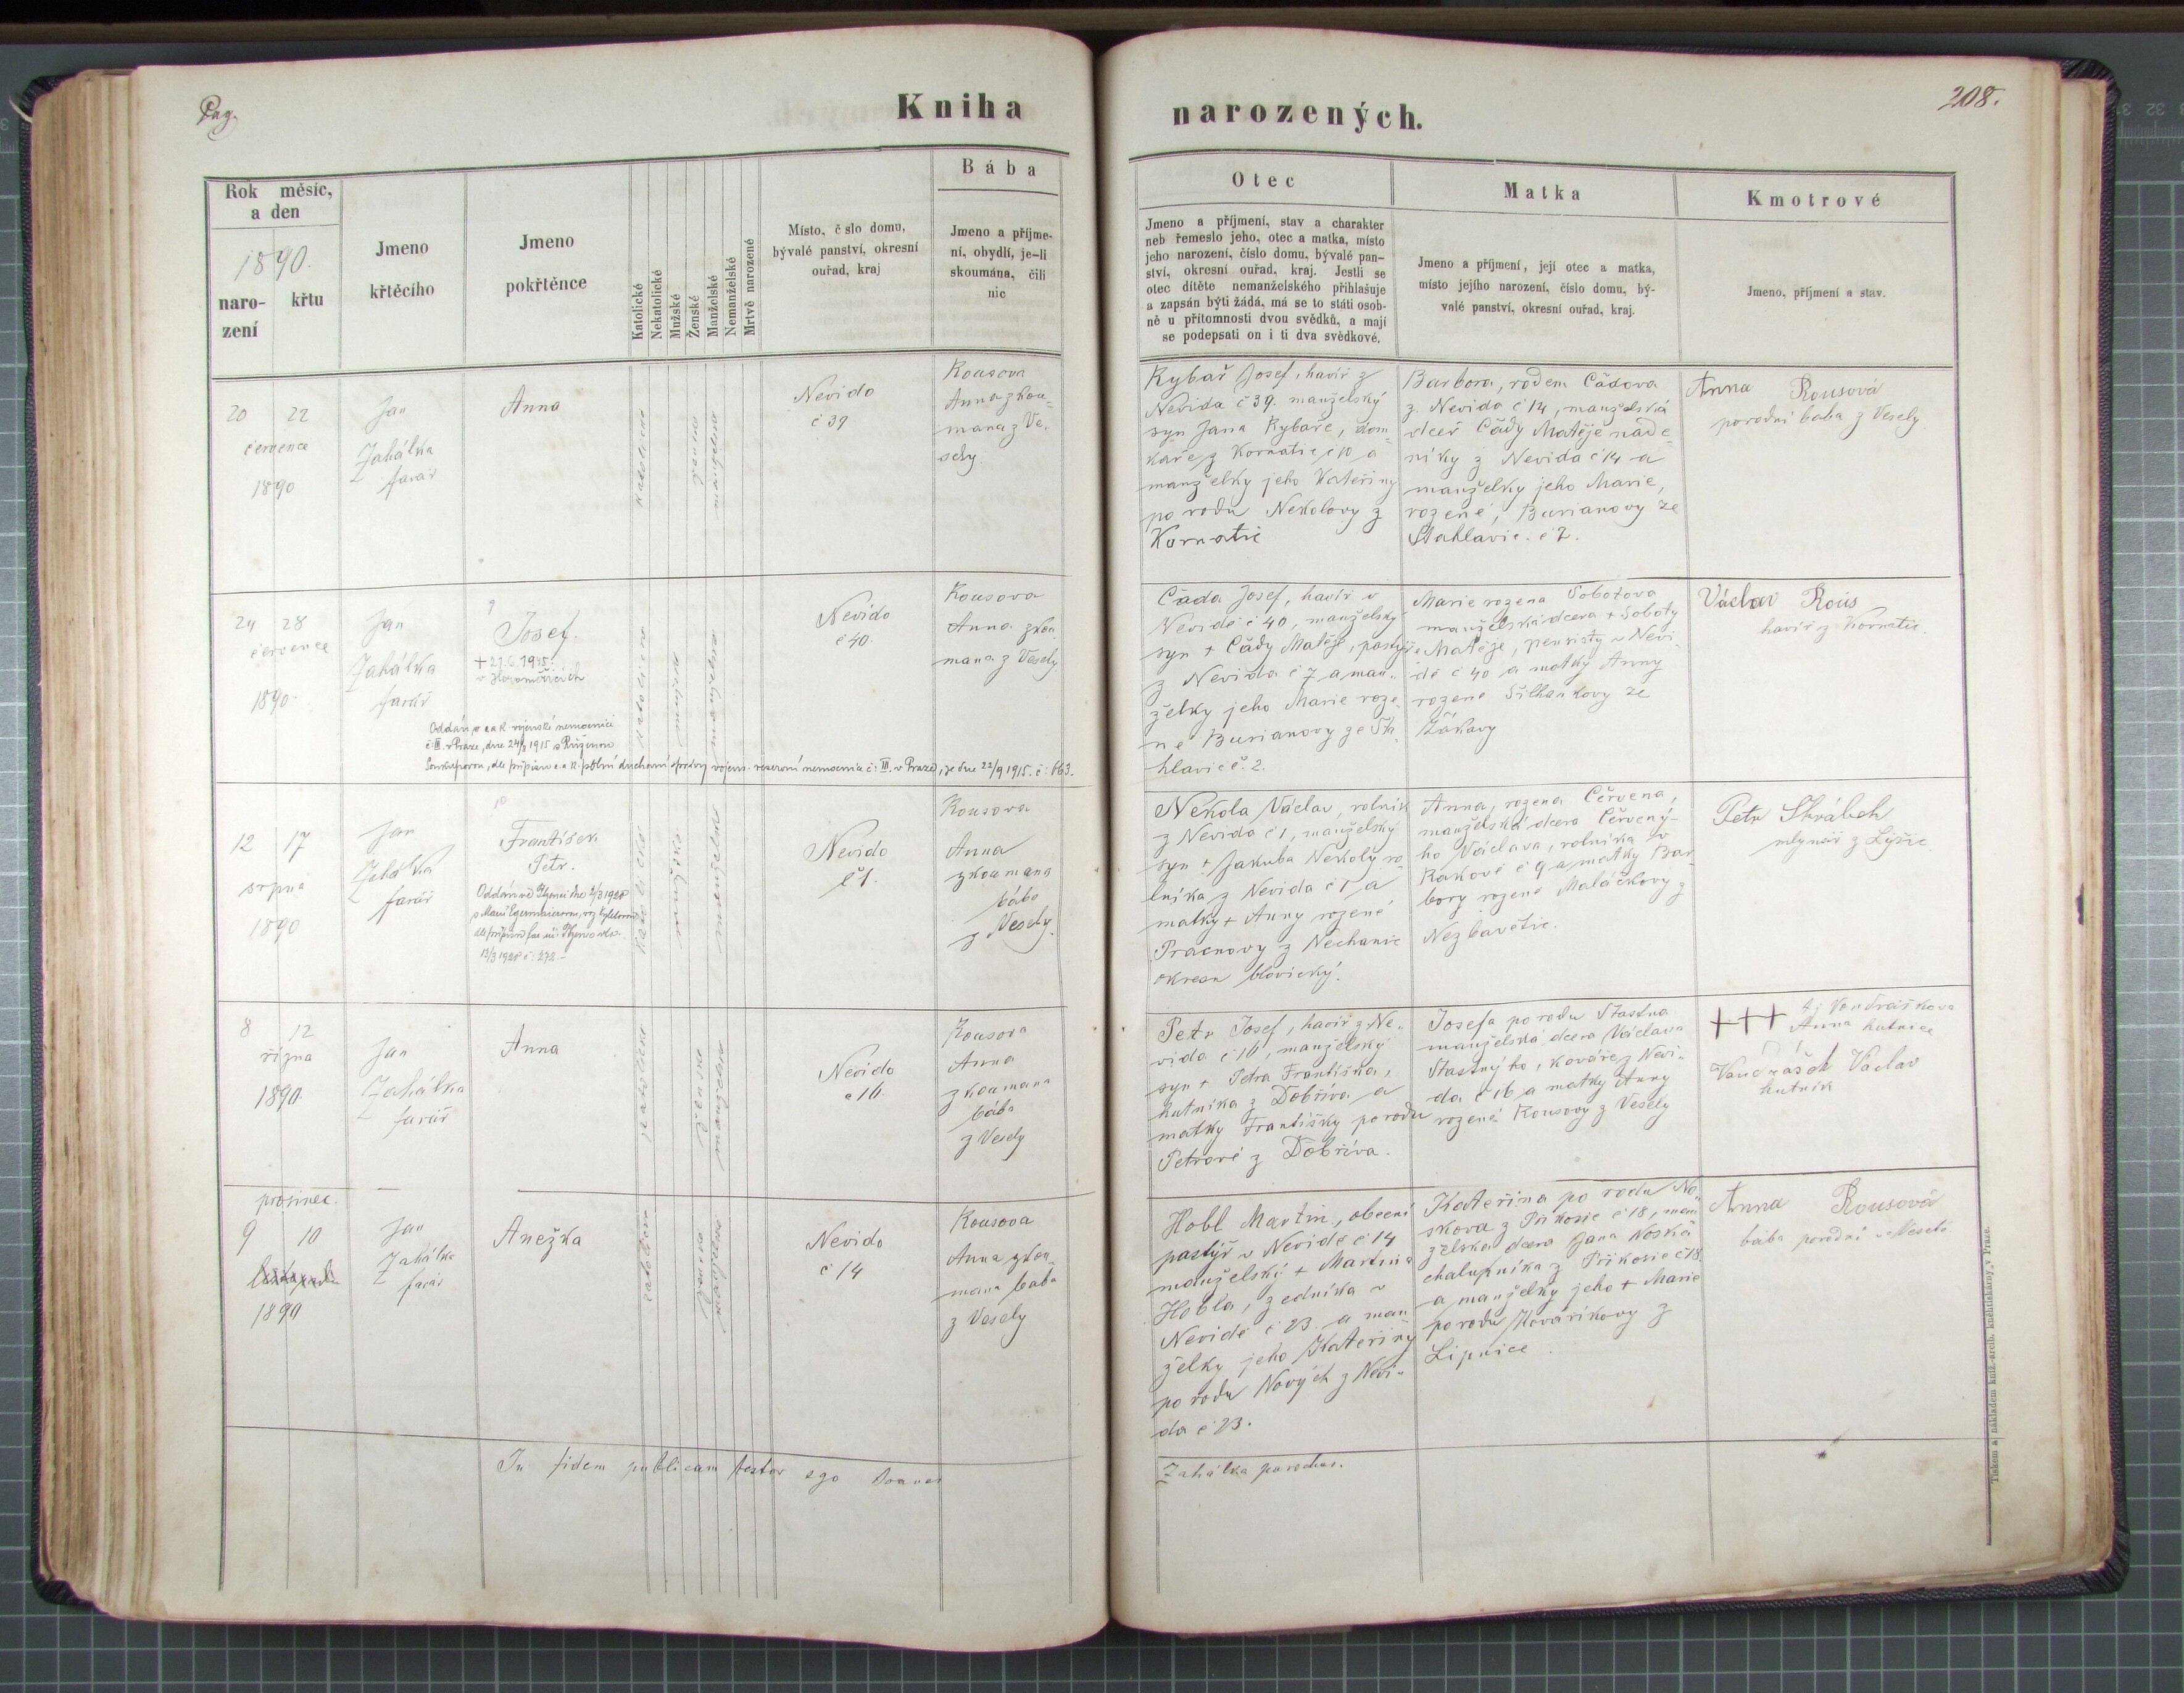 Pag.
Kniha
narozených.
208.
Rok měsíc,
a den
1890.
naro-
zení
křtu
Jmeno
křtěcího
Jmeno
pokřtěnce
Katolické
Nekatolické
Mužské
Ženské
Manželské
Nemanželské
Mrtvě narozené
Místo, č slo domu,
bývalé panství, okresní
ouřad, kraj
Bába
Jmeno a příjme-
ní, obydlí, je-li
skoumána, čili
nic
Otec
Jmeno a příjmení, stav a charakter
neb řemeslo jeho, otec a matka, místo
jeho narození, číslo domu, bývalé pan-
ství, okresní ouřad, kraj. Jestli se
otec dítěte nemanželského přihlašuje
a zapsán býti žádá, má se to státi osob-
ně u přítomnosti dvou svědků, a mají
se podepsati on i ti dva svědkové.
Matka
Jmeno a příjmení, její otec a matka,
místo jejího narození, číslo domu, bý-
valé panství, okresní ouřad, kraj.
Kmotrové
Jmeno, příjmení a stav.
20 22
července
1890
Jan
Zahálka
farář
Anna
katolické
ženské
manželské
Nevido
č 39
Rousova
Anna zkou-
mana z Ve-
sely.
Rybař Josef, havíř z
Nevida č 39. manželský
syn Jana Rybaře, dom-
káře z Kornatic č 10 a
manželky jeho Kateřiny
po rodu Nekolovy z
Kornatic
Barbora, rodem Čádova
z Nevida č 14, manželská
dceř Čády Matěje náde-
níky z Nevida č 14 a
manželky jeho Marie,
rozené, Burianovy ze
Štahlavic. č 2.
Anna Rousová
porodní baba z Vesely.
24 28
července
1890.
Jan
Zahálka
farář
9
Josef.
+ 21.6.1945.
v Horoměřicích
Oddán v c. a k. vojenské nemocnici
č. III. v Praze, dne 24/8 1915 s Růženou
dle přípisu c. a k. polní duchovní správy vojens. reservní nemocnice č: III. v Praze, ze dne 22/9 1915. č: 663.
katolické
mužské
manželské
Nevido
č 40.
Rousova
Anna zkou-
mana z Vesely.
Čáda Josef, havíř v
Nevidě č 40, manželský
syn + Čády Matěje, pastýře
z Nevida č 7 a man-
želky jeho Marie roze-
né Burianovy ze Šťa-
hlavic č. 2.
Marie rozena Sobotova
manželská dcera + Soboty
Matěje, pensisty v Nevi-
dě č 40 a matky Anny
rozené Šilhankovy ze
Žákavy
Václav Rouš
havíř z Kornatic.
12 17
srpna
1890
Jan
Zahálka
farář
10
František
Petr.
12/3 1928 č: 272.-
katolické
mužské
manželské
Nevido
č 1.
Rousova
Anna
zkoumana
bába
z Vesely.
Nekola Václav, rolník
z Nevida č 1, manželský
syn + Jakuba Nekoly ro-
lníka z Nevida č 1 a
matky + Anny rozené
Pracnovy z Nechanic
okresu blovický.
Anna, rozena Červena,
manželská dcera Červený-
ho Václava, rolníka v
Rakové č 9 a matky Bar-
bory rozené Maláčkovy z
Nezbavětic.
Petr Skrábek
mlynář z Lyšic.
8 12
října
1890
Jan
Zahálka
farář
Anna
katolické
ženské
manželské
Nevido
č 16.
Rousova
Anna
zkoumana
bába
z Vesely
Petr Josef, havíř z Ne-
vida č 16, manželský
syn + Petra Františka,
hutníka z Dobříva a
matky Františky po rodu
Petrové z Dobříva.
Josefa po rodu Šťastna
manželská dcera Václava
Šťastnýho, kováře z Nevi-
da č 16 a matky Anny
rozené Rousovy z Vesely
+++ tj. Vondrášková
Anna hutnice
Vondrášek Václav
hutník
prosinec.
9 10
1890
Jan
Zahálka
farář
Anežka
katolické
ženské
manželské
Nevido
č 14
Rousova
Anna zkou-
mana baba
z Vesely
Hobl Martin, obecní
pastýř v Nevidě č 14
manželský + Martina
Hobla, zedníka v
Nevidě č 23 a man
želky jeho Kateřiny
po rodu Nových z Nevi-
da č 23.
Kateřina po rodu No-
skova z Příkosic č 18, man
želska dcera Jana Noska
chalupníka z Příkosic č 18.
a manželky jeho + Marie
po rodu Kovaríkovy z
Lipnice.
Anna Rousová
bába porodní v Veselé
In fidem publicam testor ego Joannes
Zahálka parochus.
Tiskem a nákladem kníž.-arcib. knihtiskárny v Praze.